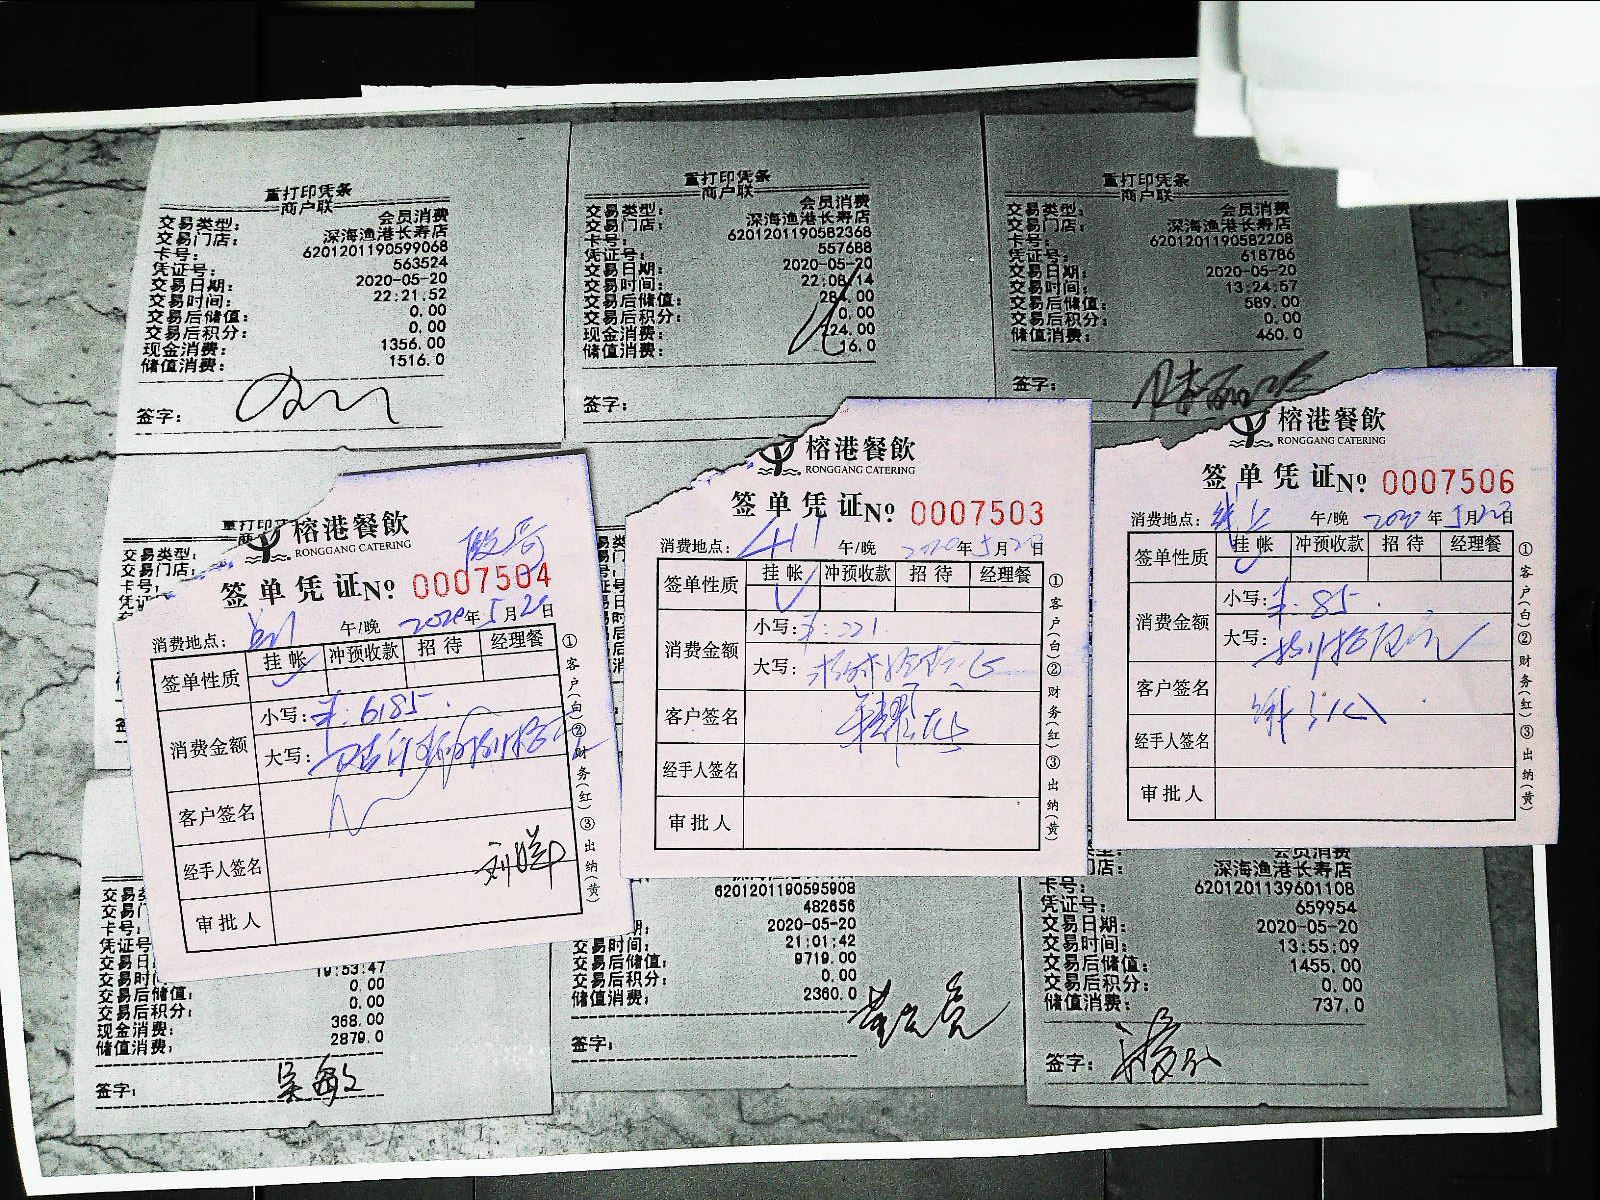 重打印凭条
商户联
交易类型： 会员消费
交易门店： 深海渔港长寿店
卡号： 6201201190599068
凭证号： 563524
交易日期： 2020-05-20
交易时间： 22:21:52
交易后储值： 0.00
交易后积分： 0.00
现金消费： 1356.00
储值消费： 1516.0
签字：
重打印凭条
商户联
交易类型： 会员消费
交易门店： 深海渔港长寿店
卡号： 6201201190582368
凭证号： 557688
交易日期： 2020-05-20
交易时间： 22:08:14
交易后储值： 284.00
交易后积分： 0.00
现金消费： 224.00
储值消费： 16.0
签字：
重打印凭条
商户联
交易类型： 会员消费
交易门店： 深海渔港长寿店
卡号： 6201201190582208
凭证号： 618786
交易日期： 2020-05-20
交易时间： 13:24:57
交易后储值： 589.00
交易后积分： 0.00
储值消费： 460.0
签字：
重打印
交易类型：
交易门店：
榕港餐飲
RONGGANG CATERING
签单凭证 № 0007504
消费地点： 午/晚 2020年5月20日
签单性质 挂帐 冲预收款 招待 经理餐
消费金额 小写：¥：6185
大写：
客户签名
经手人签名
审批人
①客户(白)②财务(红)③出纳(黄)
榕港餐飲
RONGGANG CATERING
签单凭证 № 0007503
消费地点： 411 午/晚 2020年5月20日
签单性质 挂帐 冲预收款 招待 经理餐
消费金额 小写：¥：221
大写：
客户签名
经手人签名
审批人
①客户(白)②财务(红)③出纳(黄)
榕港餐飲
RONGGANG CATERING
签单凭证 № 0007506
消费地点： 午/晚 2020年5月20日
签单性质 挂帐 冲预收款 招待 经理餐
消费金额 小写：¥：85
大写：
客户签名
经手人签名
审批人
①客户(白)②财务(红)③出纳(黄)
19:53:47
交易后储值： 0.00
交易后积分： 0.00
现金消费： 368.00
储值消费： 2879.0
签字： 吴敏
6201201190595908
482656
2020-05-20
交易时间： 21:01:42
交易后储值： 9719.00
交易后积分： 0.00
储值消费： 2360.0
签字：
会员消费
深海渔港长寿店
卡号： 6201201139601108
凭证号： 659954
交易日期： 2020-05-20
交易时间： 13:55:09
交易后储值： 1455.00
交易后积分： 0.00
储值消费： 737.0
签字：